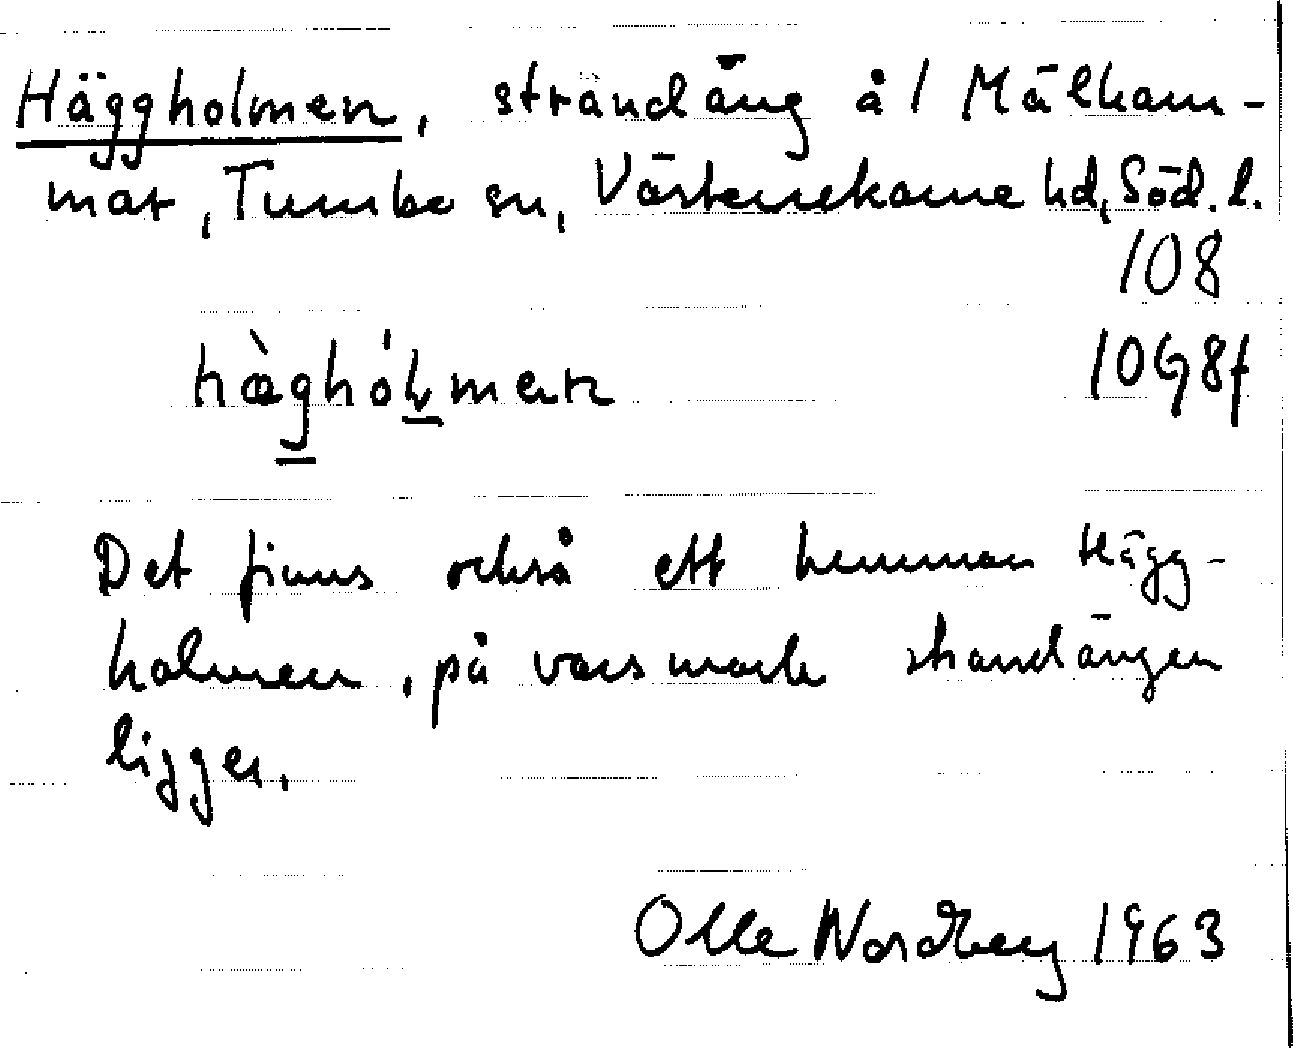 Häggholmen, strandäng å 1 Mälkam-
mar, Tumbo sn, Västerrekarne hd, Söd. l.
108
hæ̀ghólmen
10G8f
Det finns också ett hemman Hägg-
holmen, på vars mark strandängen
ligger.
Olle Nordberg 1963